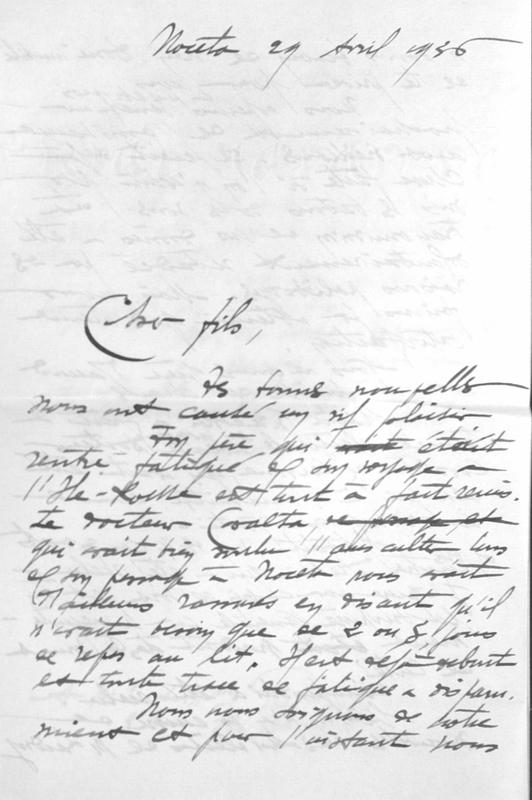 Noceta 29 Avril 1936
Cher fils,
Tes bonnes nouvelles
nous ont causé un vif plaisir
Ton père qui était
rentré fatigué de son voyage à
l'Ile-Rousse est tout à fait remis.
Le docteur
qui avait bien voulu l'ausculter lors
de son passage à Noceta nous avait
d'ailleurs rassurés en disant qu'il
n'avait besoin que de 2 ou 3 jours
de repos au lit. Il est déjà debout
et toute trace de fatigue a disparu.
Nous nous soignons de notre
mieux et pour l'instant nous